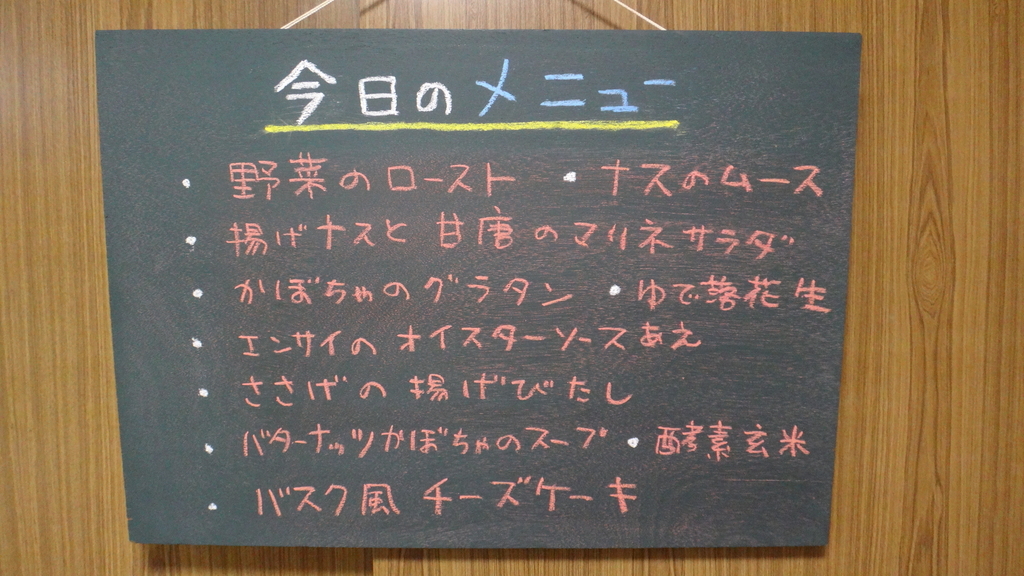 今日のメニュー
・野菜のロースト ・ナスのムース
・揚げナスと甘唐のマリネサラダ
・かぼちゃのグラタン ・ゆで落花生
・エンサイのオイスターソースあえ
・ささげの揚げびたし
・バターナッツかぼちゃのスープ ・酵素玄米
・バスク風チーズケーキ